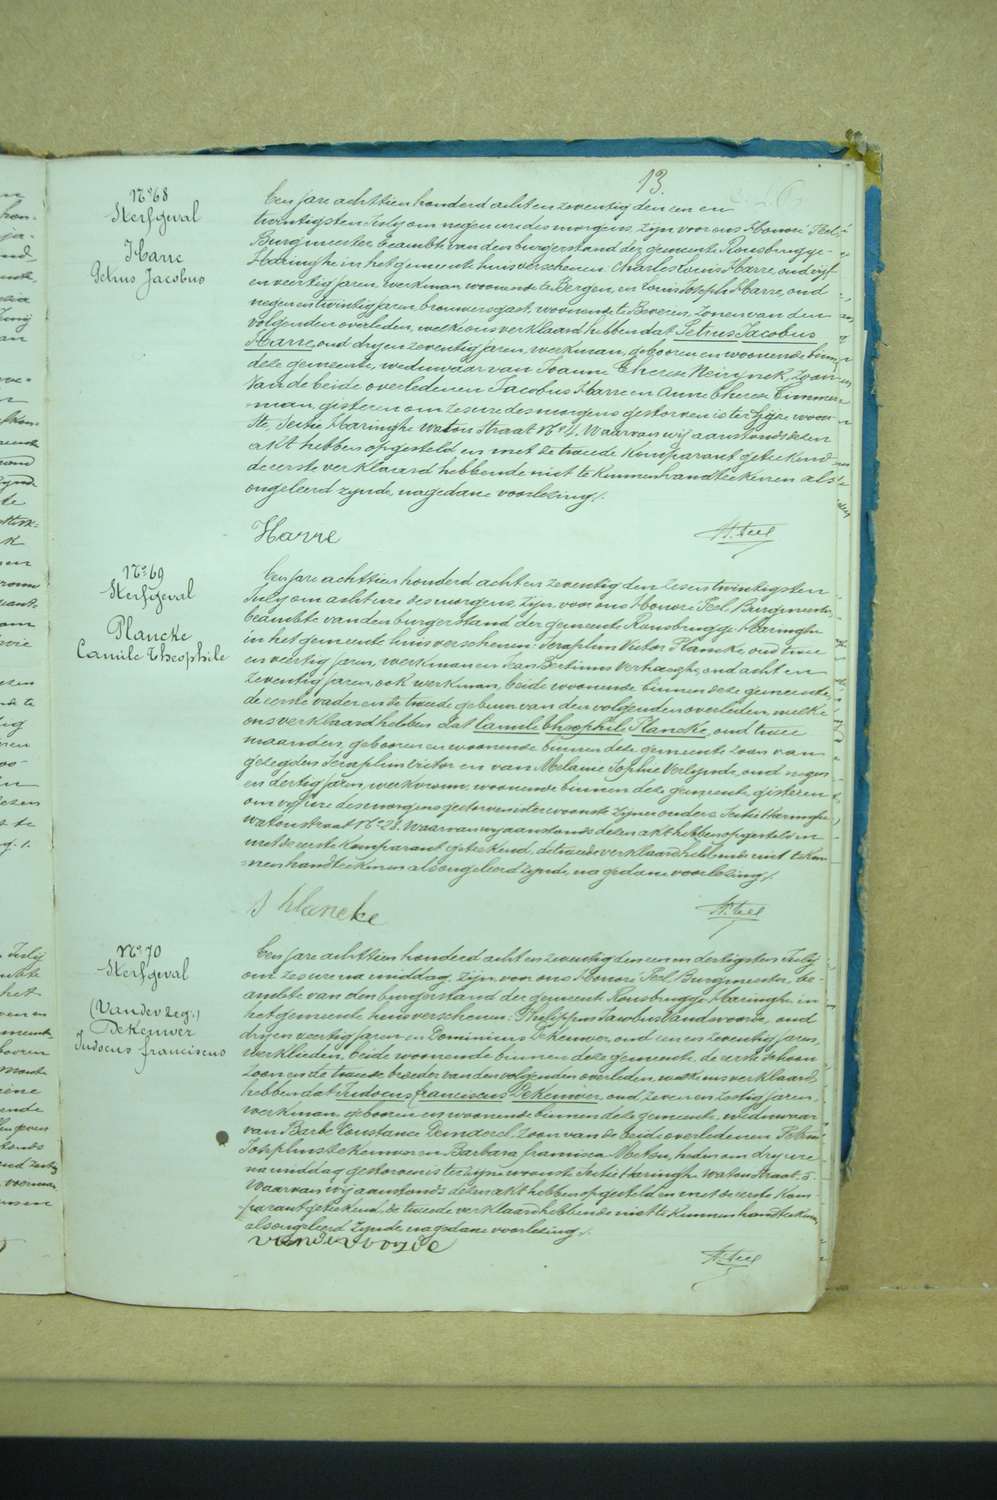 13.
N° 68
Sterfgeval
Harre
Petrus Jacobus
Een jare achttien honderd acht en zeventig den een en
twintigsten July om negen ure des morgens, zijn voor ons Honoré Peel,
Burgmeester beambte van den burgerstand der gemeente Rousbrugge-
Haringhe in het gemeente huis verschenen: Charles Louis Harre, oud vyf
en veertig jaren, werkman woonende te Bergen, en Louis Joseph Harre, oud
negen en twintig jaren, brouwersgast, woonende te Beveren, zonen van den
volgenden overleden, welke ons verklaard hebben dat Petrus Jacobus
Harre, oud dry en zeventig jaren, werkman, gebooren en woonende binnen
deze gemeente, weduwaar van Joanne Therese Neirynck, zoon
van de beide overledenen Jacobus Harre en Anne Therese Timmer-
man, gisteren om zes ure des morgens gestorven is ter zyne woon-
ste, Sectie Haringhe Watou straat N° 4. Waarvan wij aanstonds dezen
akt hebben opgesteld en met de tweede komparant geteekend
de eerste verklaard hebbende niet te kunnen handteekenen als
ongeleerd zynde, na gedane voorlezing /.
Harre
H. Peel
N° 69
Sterfgeval
Plancke
Camile Theophile
Een jare achttien honderd acht en zeventig den zes en twintigsten
July om acht ure des morgens, zijn voor ons Honoré Peel, Burgmeester,
beambte van den burgerstand der gemeente Rousbrugge-Haringhe
in het gemeente huis verschenen: Seraphin Victor Plancke, oud twee
en veertig jaren, werkman en Jean Bertinus Verhaeghe, oud acht en
zeventig jaren, ook werkman, beide woonende binnen deze gemeente,
de eerste vader en de tweede gebuur van den volgenden overleden, welke
ons verklaard hebben dat Camile Theophile Plancke, oud twee
maanden, gebooren en woonende binnen deze gemeente zoon van
gezegden Seraphin Victor en van Melanie Sophie Verlynde, oud negen
en dertig jaren, werkvrouw, woonende binnen deze gemeente gisteren
om vyf ure des morgens gestorven is ter woonste zijner ouders Sectie Haringhe
Watou straat N° 28. Waarvan wy aanstonds dezen akt hebben opgesteld en
met de eerste komparant geteekend, de tweede verklaard hebbende niet te kun-
nen handteekenen als ongeleerd zynde, na gedane voorlezing /.
S Plancke
H. Peel
N° 70
Sterfgeval
(Vander zeg.)
Dekeuwer
Judocus franciscus
Een jare achttien honderd acht en zeventig den een en dertigsten July
om zes ure na middag, zijn voor ons Honoré Peel, Burgmeester, be-
ambte van den burgerstand der gemeente Rousbrugge-Haringhe in
het gemeente huis verschenen: Philippus Jacobus Vandevoorde, oud
dry en veertig jaren en Dominicus Dekeuwer, oud een en zeventig jaren,
werklieden, beide woonende binnen deze gemeente, de eerste schoon
zoon en de tweede broeder van den volgenden overleden, welke ons verklaard
hebben dat Judocus franciscus Dekeuwer, oud zeven en zestig jaren,
werkman gebooren en woonende binnen deze gemeente, weduwaar
van Barbe Constance zoon van de beide overledenen Petrus
Josephus Dekeuwer en Barbara francisca heden om dry ure
na middag gestorven is ter zyne woonste Sectie Haringhe Watou straat 5.
Waarvan wij aanstonds dezen akt hebben opgesteld en met de eerste kom-
parant geteekend, de tweede verklaard hebbende niet te kunnen handteekenen,
als ongeleerd zynde, na gedane voorlezing /.
vandevoorde
H. Peel